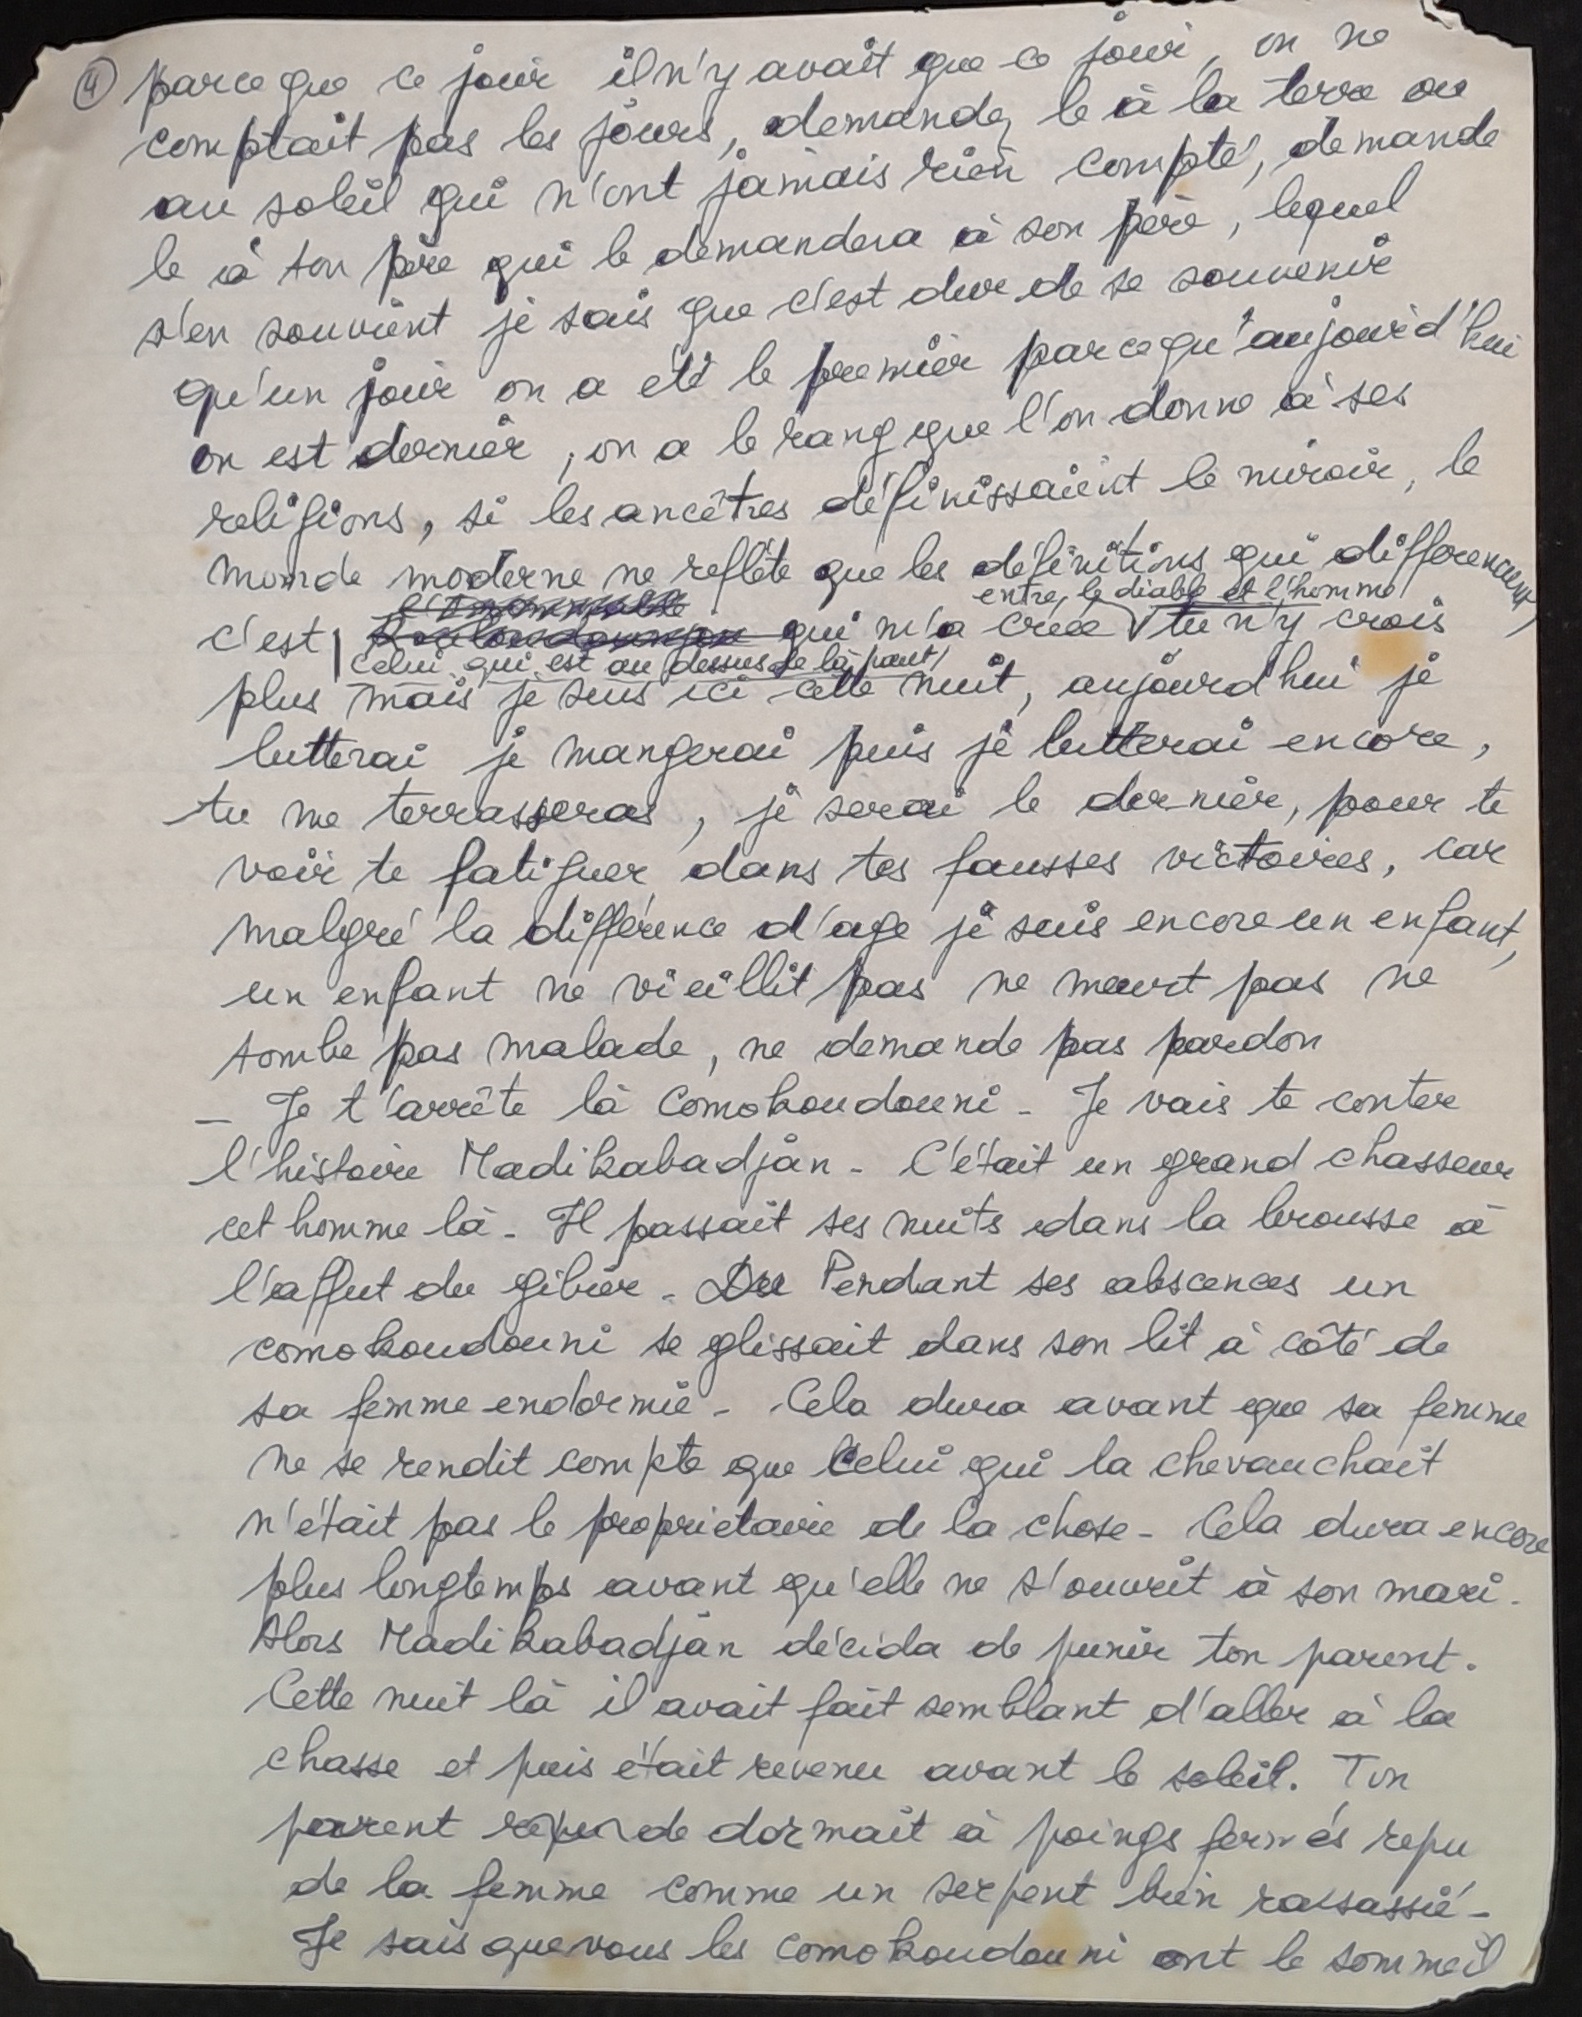 ④ parceque ce jour il n'y avait que ce jour, on ne
comptait pas les jours, demandez le à la terre ou
au soleil qui n'ont jamais rien compté, demande
le à ton père qui le demandera à son père, lequel
s'en souvient je sais que c'est dur de se souvenir
qu'un jour on a été le premier parcequ'aujourd'hui
on est dernier, on a le rang que l'on donne à ses
religions, si les ancêtres définissaient le miroir, le
monde moderne ne reflète que les définitions qui différencient,
entre le diable et l'homme
c'est qui m'a créé tu n'y crois
celui qui est au dessus de là haut
plus mais je suis ici cette nuit, aujourd'hui je
lutterai je mangerai puis je lutterai encore,
tu me terrasseras, je serai le dernier, pour te
voir te fatiguer dans tes fausses victoires, car
malgré la différence d'age je suis encore un enfant,
un enfant ne vieillit pas ne meurt pas ne
tombe pas malade, ne demande pas pardon
- Je t'arrête là Comokoudouni - Je vais te conter
l'histoire Madikabadjàn - C'était un grand chasseur
cet homme là - Il passait ses nuits dans la brousse à
l'affut du gibier - Du Pendant ses abscences un
comokoudouni se glissait dans son lit à côté de
sa femme endormie - Cela dura avant que sa femme
ne se rendit compte que Celui qui la chevauchait
n'était pas le proprietaire de la chose - Cela dura encore
plus longtemps avant qu'elle ne s'ouvrît à son mari.
Alors Madikabadjàn décida de punir ton parent.
Cette nuit là il avait fait semblant d'aller à la
chasse et puis était revenu avant le soleil. Ton
parent de dormait à poings fermés repu
de la femme comme un serpent bien rassassié -
Je sais que vous les comokoudouni ont le sommeil